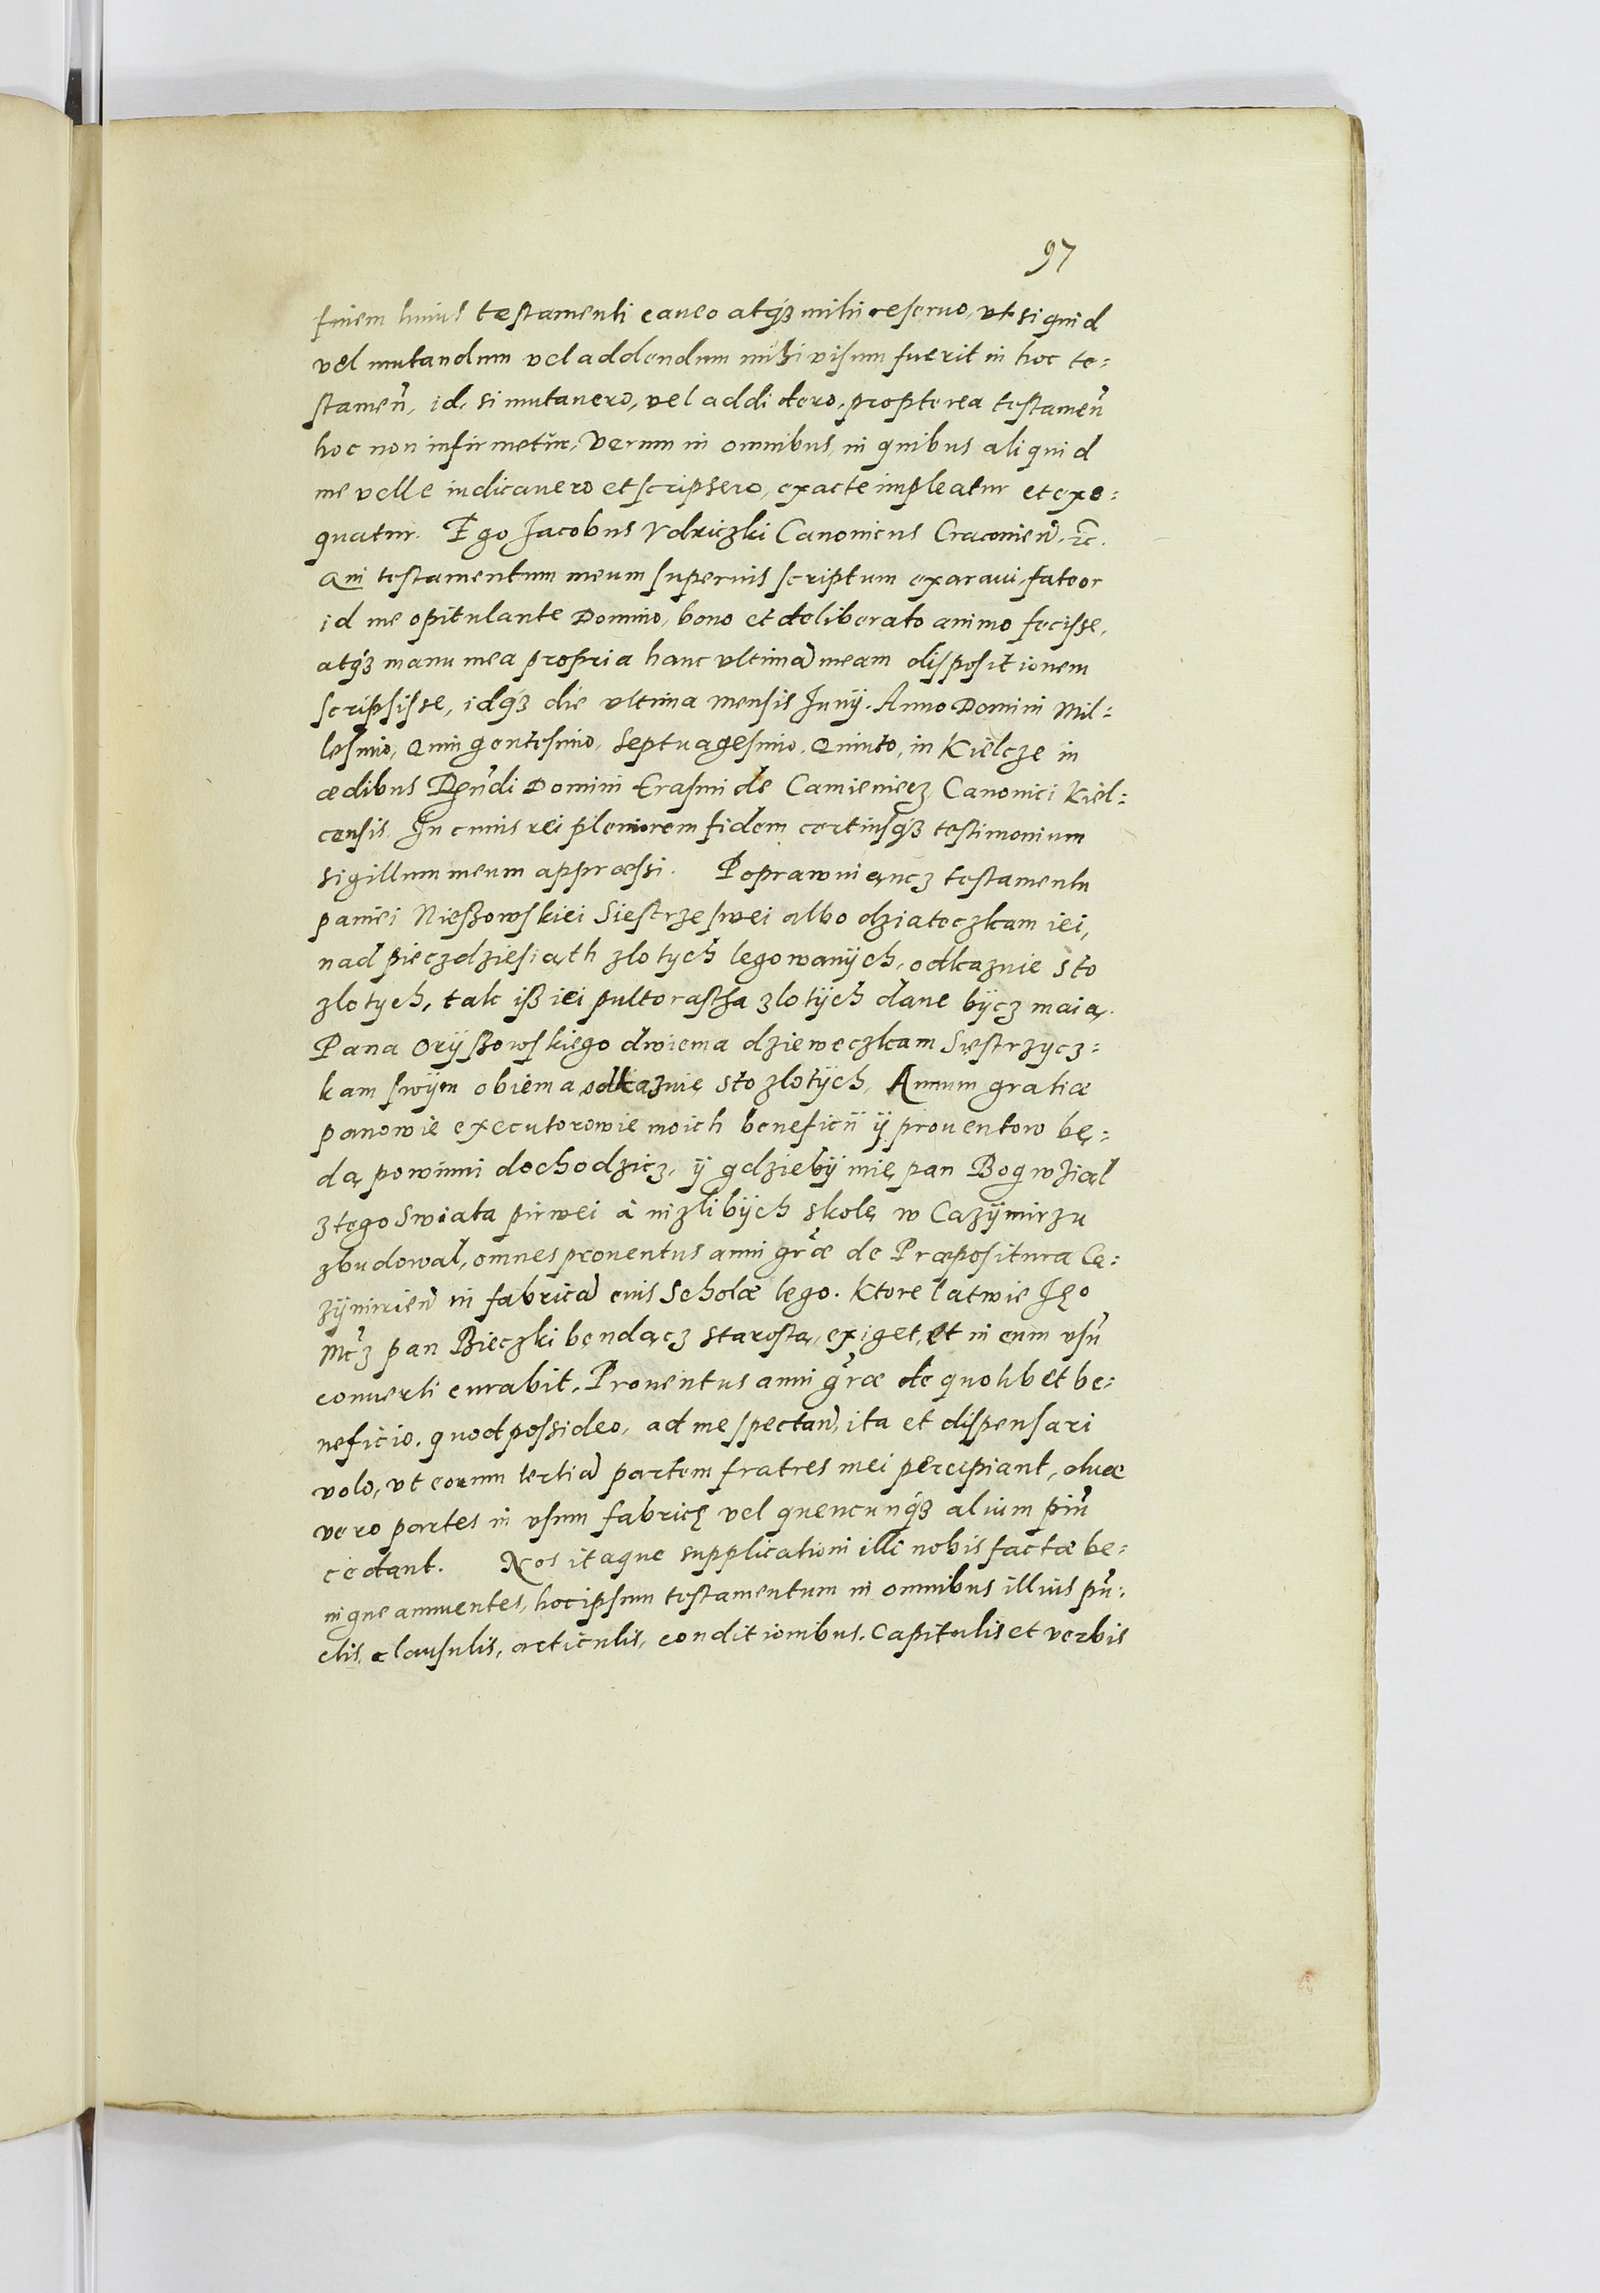 97
finem huius testamenti caveo atq́ꝫ mihi reservo, ut si quid
vel mutandum vel addendum mihi visum fuerit in hoc te=
stamen̄, id, si mutavero, vel addidero, propterea testamen̄
hoc non infirmetur, Verum in omnibus, in quibus aliquid
me velle iudicavero et scripsero, exacte impleatur et exe=
quatur. Ego Jacobus Vdriczki Canonicus Cracovien̄. ꝛc.
Qui testamentum meum superius scriptum exaravi, fateor
id me opitulante Domino, bono et deliberato animo fecisse,
atq́ꝫ manu mea propria hanc ultimā meam dispositionem
scripsisse, idq́ꝫ die ultima mensis Junij. Anno Domini Mil=
lesimo, Quingentesimo, Septuagesimo, Quinto, in Kielcze in
ædibus Rn̄di Domini Erasmi de Camieniecz Canonici Kiel=
censis. In cuius rei pleniorem fidem certiusq́ꝫ testimonium
sigillum meum appræssi. Poprawuięncz testamentu
paniei Nieszowskiei Siestrze swei albo dziateczkam iei,
nad pieczdziesiąth zlotych legowanÿch, odkazuie sto
zlotych, tak isz iei pultorastha zlotÿch dane bÿcz maią.
Pana Orÿszowskiego dwiema dzieweczkam Siestrzycz=
kam swÿm obiema odkazuię sto zlotÿch, Annum gratiæ
panowie executorowie moich beneficii ÿ proventow bę=
dą powinni dochodzicz, ÿ gdziebÿ mię pan Bog wział
z tego swiata pirwei à nizlibÿch skolę w Cazÿmirzu
zbudowal, omnes proventus anni gr̄æ de Præpositura Ca=
zÿmirien̄ in fabricā eius Scholæ lego. Ktore latwie Je̊o
Mc̄ꝫ pan Bieczki bęndącz starostą, exiget, et in eum usū
converti curabit. Proventus anni gr̄æ de quolibet be=
neficio, quod possideo, ad me spectan̄, ita et dispensari
volo, ut eorum tertiā partem fratres mei percipiant, duæ
vero partes in usum fabricę vel quencunq́ꝫ alium piū
cedant. Nos itaque supplicationi illi nobis factæ be=
nigne annuentes, hoc ipsum testamentum in omnibus illius pū=
ctis, clausulis, articulis, conditionibus, capitulis et verbis